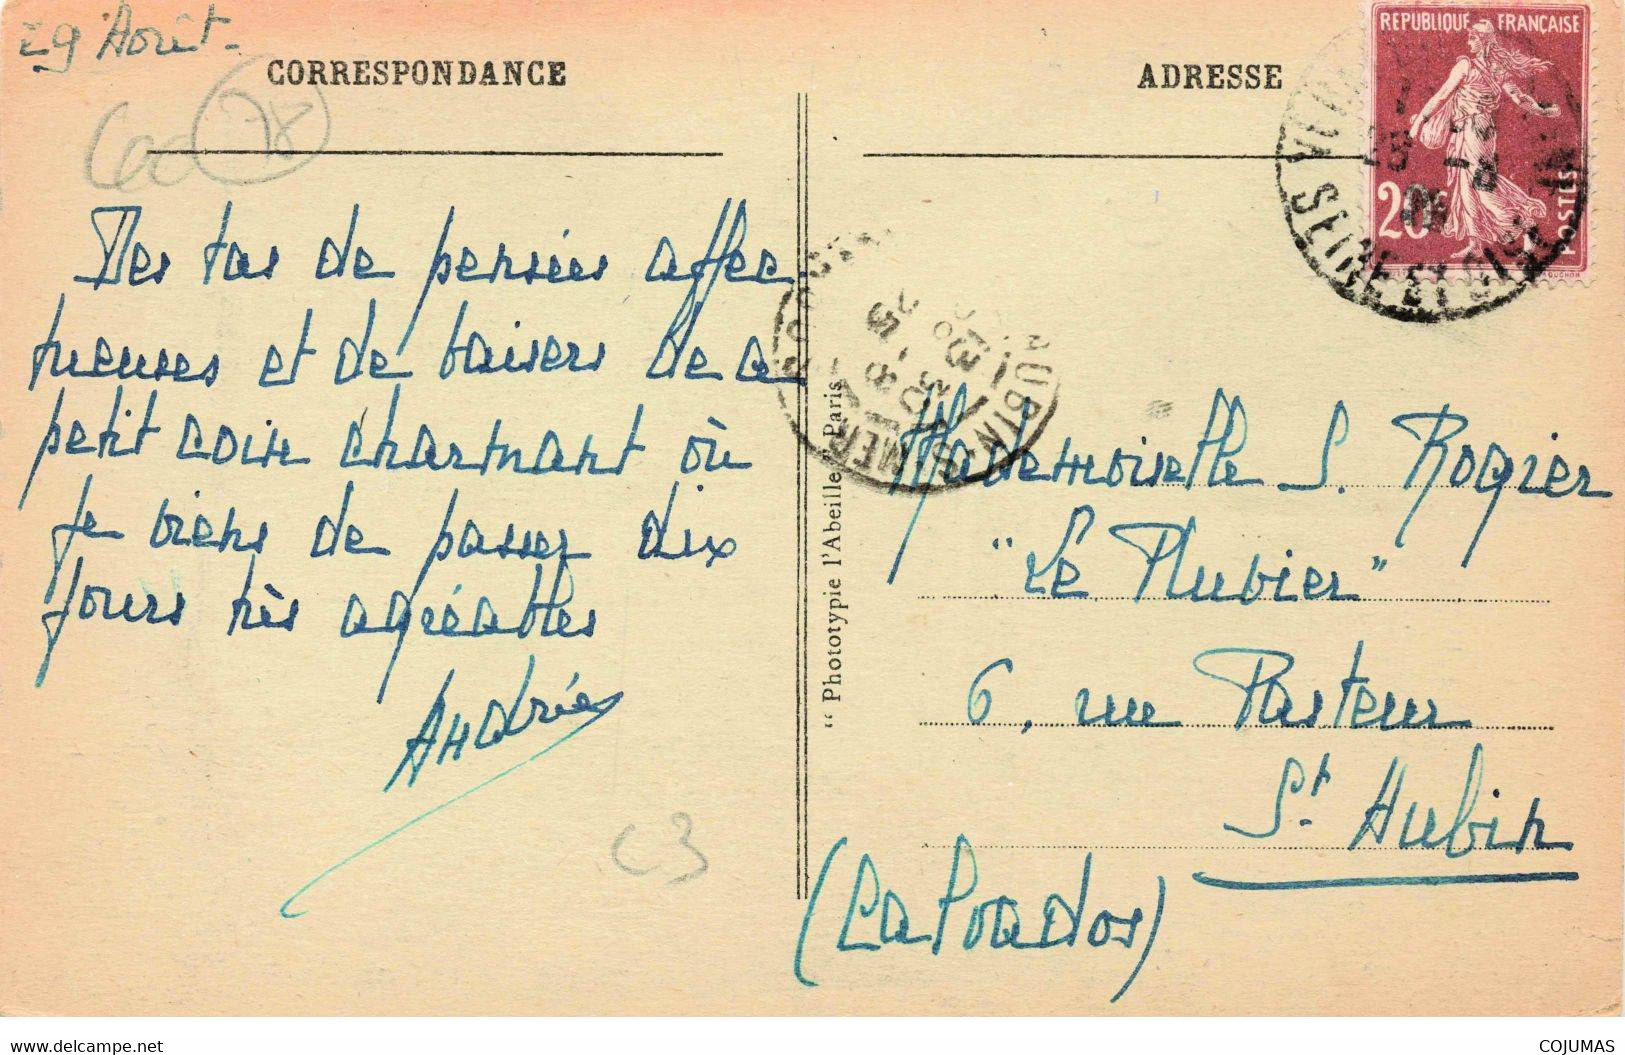 29 Août -
CORRESPONDANCE
ADRESSE
REPUBLIQUE FRANÇAISE
20
POSTES
SEINE ET OISE
600 78
Des tas de pensées affec
tueuses et de baisers de ce
petit coin charmant où
je viens de passer dix
jours très agréables
Andrée
C3
"Phototypie l'Abeille" Paris
AUBIN-S-MER
CALVADOS
Mademoiselle S. Rogier
"Le Plubier"
6, rue Pasteur
St Aubin
(Calvados)
www.delcampe.net
COJUMAS